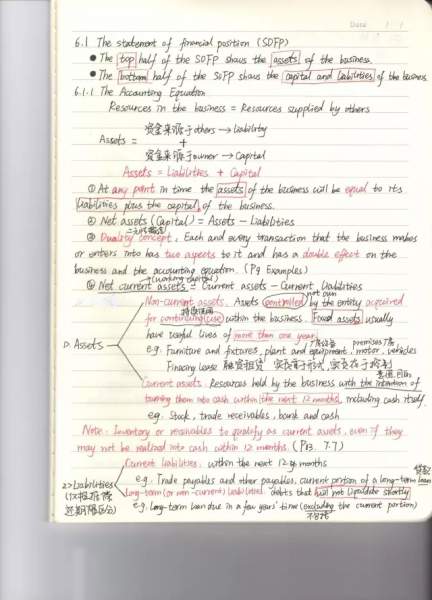 Date
6.1 The statement of financial position (SOFP)
● The top half of the SOFP shows the assets of the business.
● The bottom half of the SOFP shows the capital and liabilities of the business
6.1.1 The Accounting Equation
Resources in the business = Resources supplied by others
资金来源于others → liability
Assets = +
资金来源于owner → Capital
Assets = Liabilities + Capital
① At any point in time the assets of the business will be equal to its
liabilities plus the capital of the business.
② Net assets (Capital) = Assets - Liabilities
③ Duality concept, Each and every transaction that the business makes
or enters into has two aspects to it and has a double effect on the
business and the accounting equation. (P9 Examples)
(working capital)
④ Net current assets = Current assets - Current Liabilities
not own
Non-current assets. Assets controlled by the entity acquired
for continuing (use) within the business. Fixed assets usually
have useful lives of more than one year.
1> Assets
厂房设备 premises 厂房
e.g. Furniture and fixtures, plant and equipment, motor vehicles
Finacing lease 融资租赁 实质重于形式
意图, 目的
Current assets. Resources held by the business with the intention of
turning them into cash within the next 12 months, including cash itself.
e.g. Stock, trade receivables, bank and cash
Note: Inventory or receivables to qualify as current assets, even if they
may not be realized into cash within 12 months. (P13. 7.7)
Current liabilities. within the next 12 months
贷款
e.g. Trade payables and other payables, current portion of a long-term loan
2> Liabilities
Long-term (or non-current) liabilities. debts that will not liquidate shortly
e.g. Long-term loan due in a few years' time (excluding the current portion)
不包括